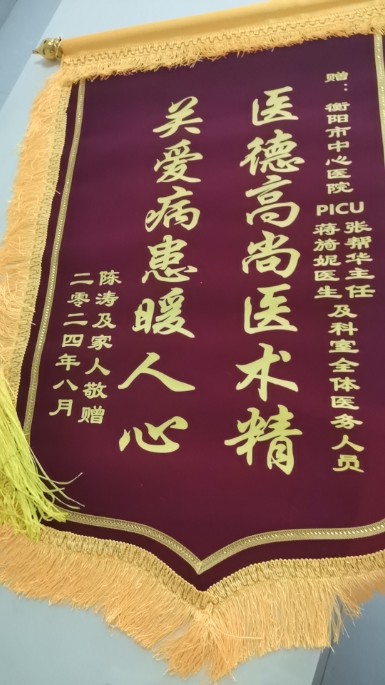 赠：衡阳市中心医院
PICU 张帮华主任
蒋旖妮医生
及科室全体医务人员
医德高尚医术精
关爱病患暖人心
陈涛及家人敬赠
二零二四年八月